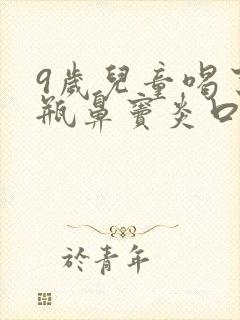 9歲兒童喝了
瓶鼻竇炎口
於青年